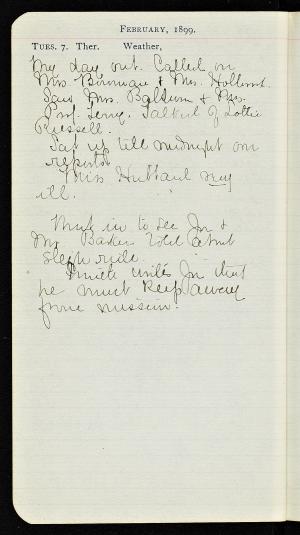 FEBRUARY, 1899.
TUES. 7. Ther. Weather,
My day out. Called on
Mrs. Bowman & Mrs.
Saw Mrs. Baldwin & Mrs.
Talked of Lottie
Russell.
Sat up till midnight on
reports.
Miss Hubbard very
ill.
in to see Jn &
Mr Baker told about
sleigh ride.
Jn that
he must keep away
from mission.